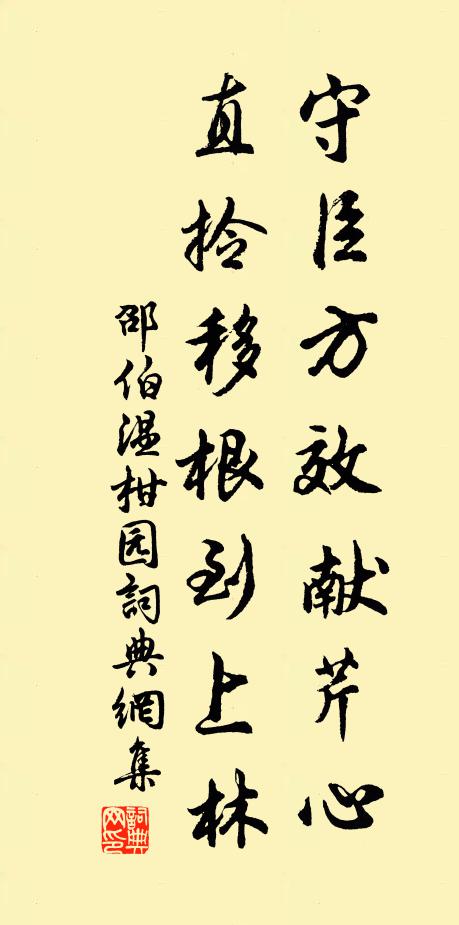 守臣方效献芹心
直拾移根到上林
邵伯温柑园詞典網集
詞典网印